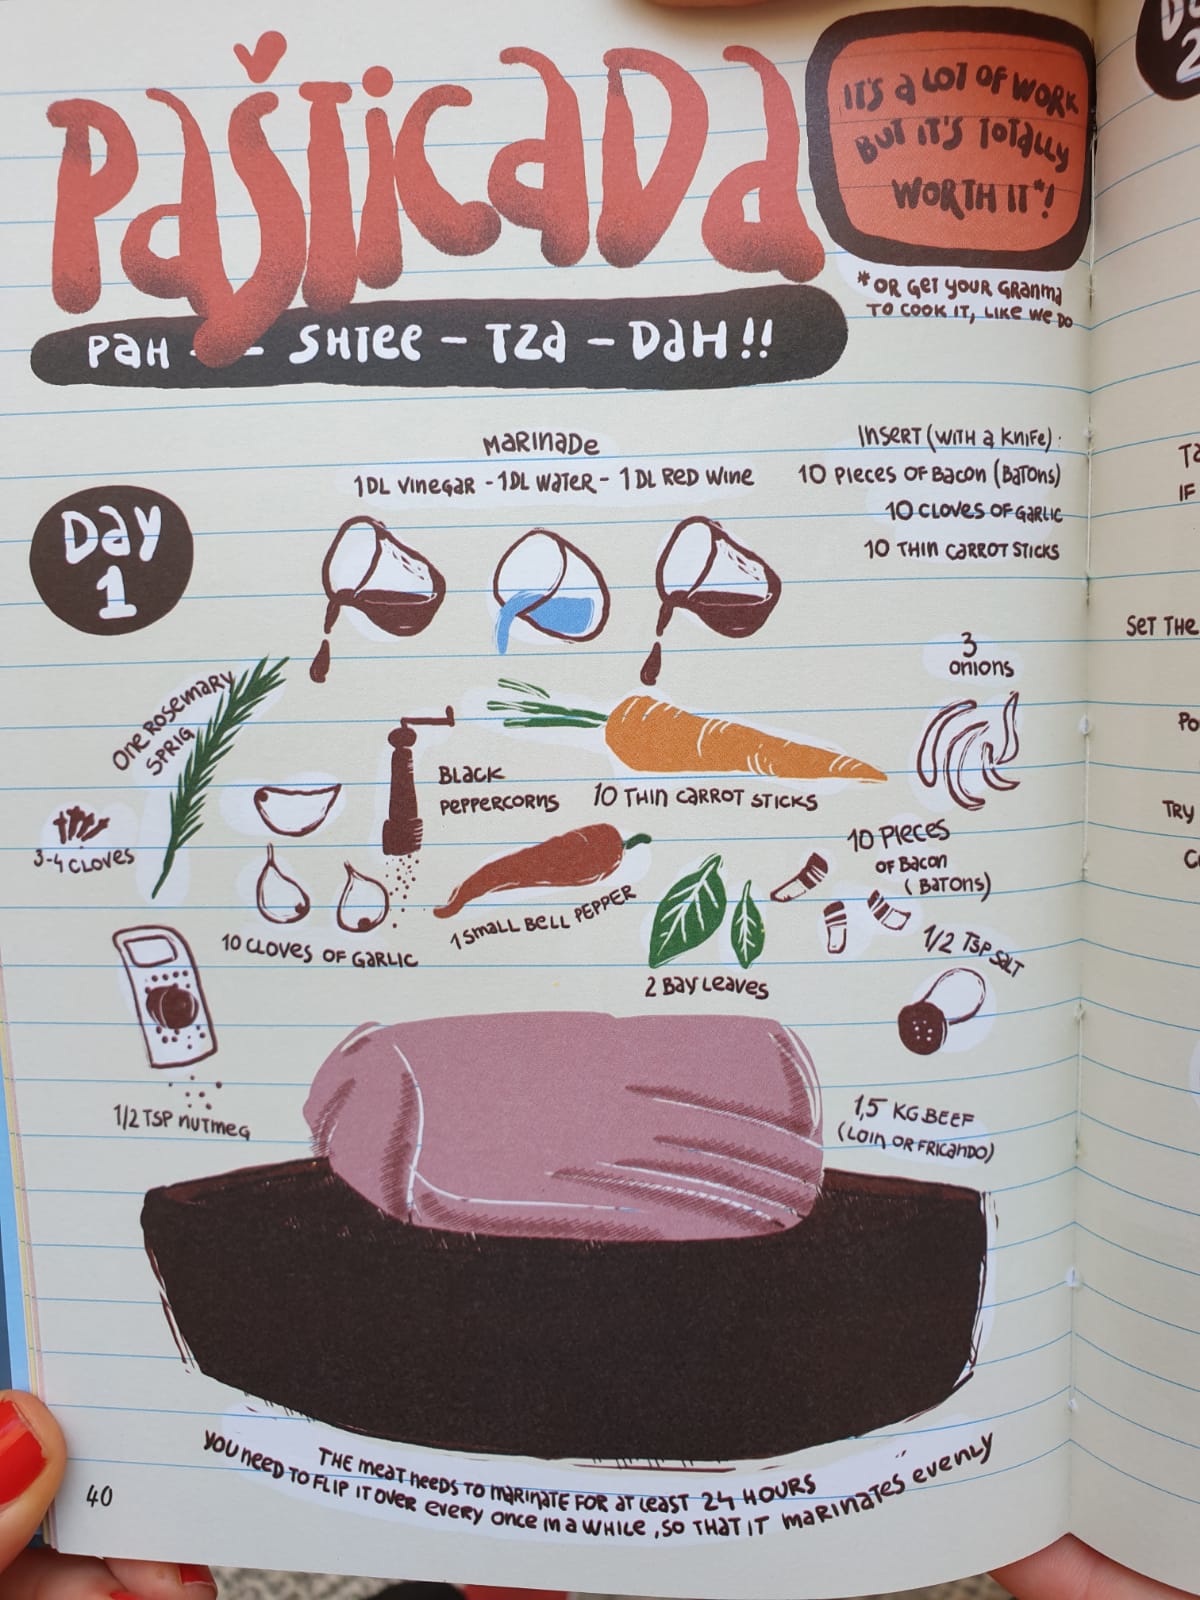 PAŠTICADA
PAH - SHTEE - TZA - DAH!!
IT'S A LOT OF WORK
BUT IT'S TOTALLY
WORTH IT*!
*OR GET YOUR GRANMA
TO COOK IT, LIKE WE DO
DAY
1
MARINADE
1DL VINEGAR - 1DL WATER - 1DL RED WINE
INSERT (WITH A KNIFE):
10 PIECES OF BACON (BATONS)
10 CLOVES OF GARLIC
10 THIN CARROT STICKS
3
ONIONS
ONE ROSEMARY
SPRIG
BLACK
PEPPERCORNS
10 THIN CARROT STICKS
3-4 CLOVES
10 PIECES
OF BACON
(BATONS)
1 SMALL BELL PEPPER
10 CLOVES OF GARLIC
2 BAY LEAVES
1/2 TSP SALT
1/2 TSP NUTMEG
1,5 KG BEEF
(LOIN OR FRICANDO)
THE MEAT NEEDS TO MARINATE FOR AT LEAST 24 HOURS
YOU NEED TO FLIP IT OVER EVERY ONCE IN A WHILE, SO THAT IT MARINATES EVENLY
40
2
IF
SET THE
TRY